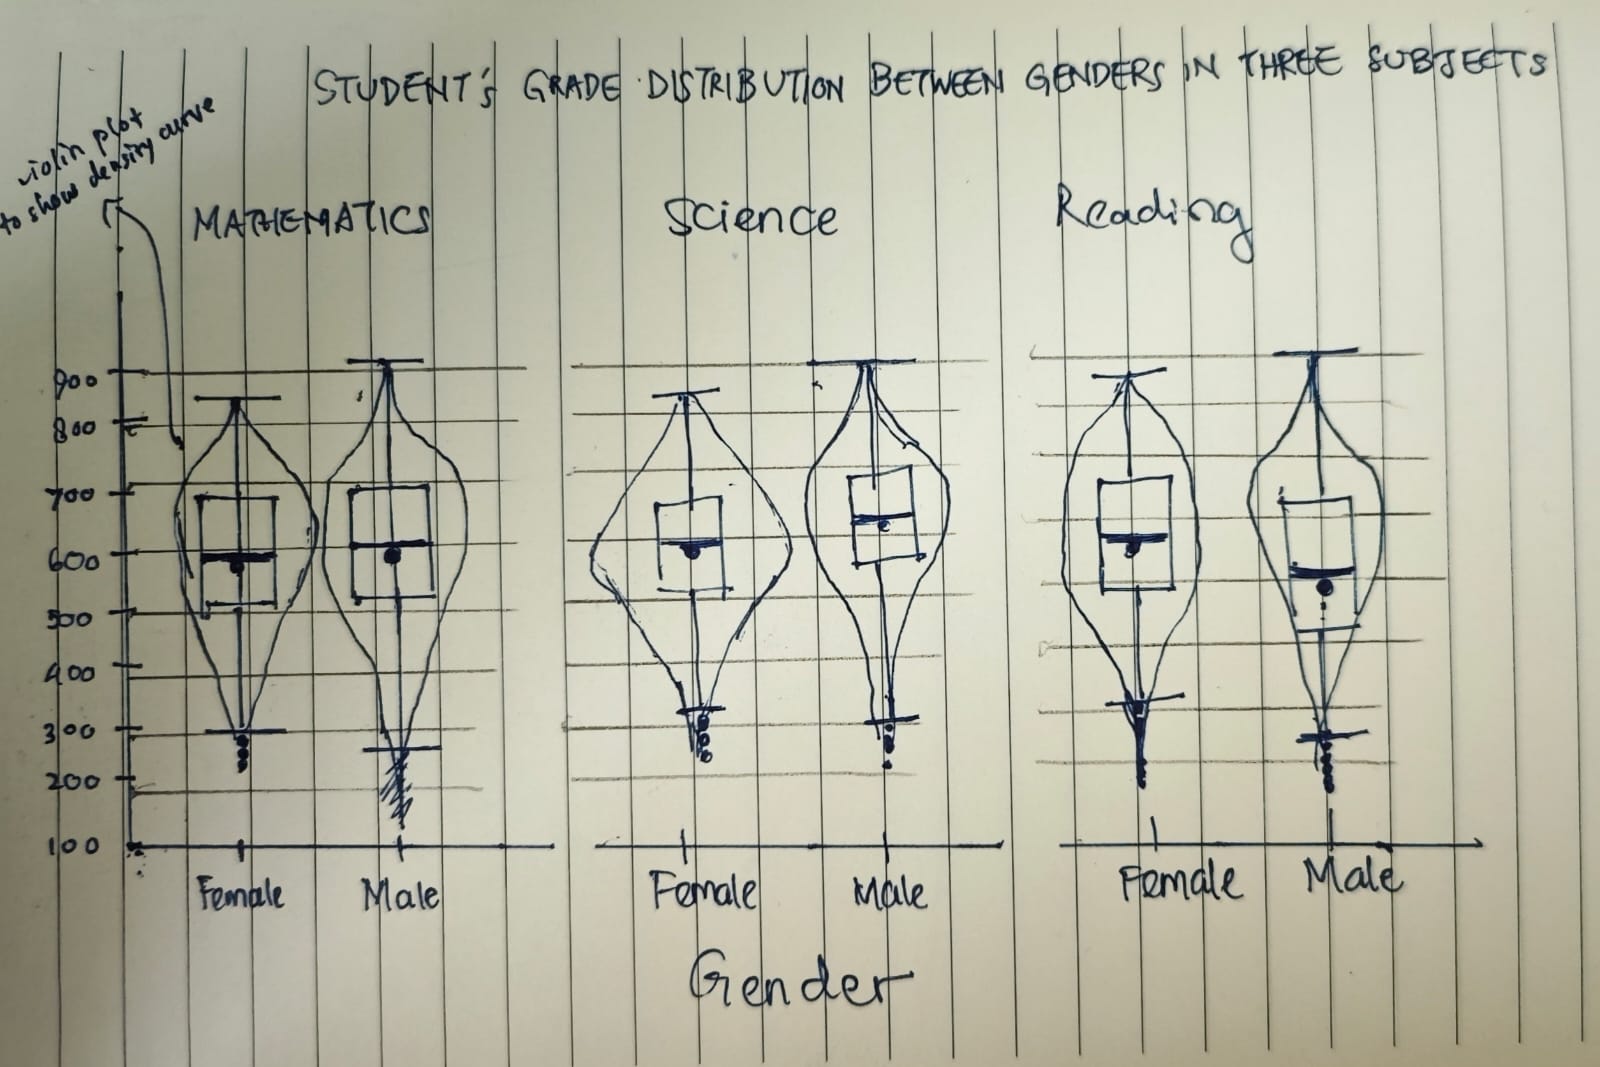 STUDENT's GRADE DISTRIBUTION BETWEEN GENDERS IN THREE SUBJECTS
violin plot
to show density curve
MATHEMATICS Science Reading
900
800
700
600
500
400
300
200
100
Female Male Female Male Female Male
Gender